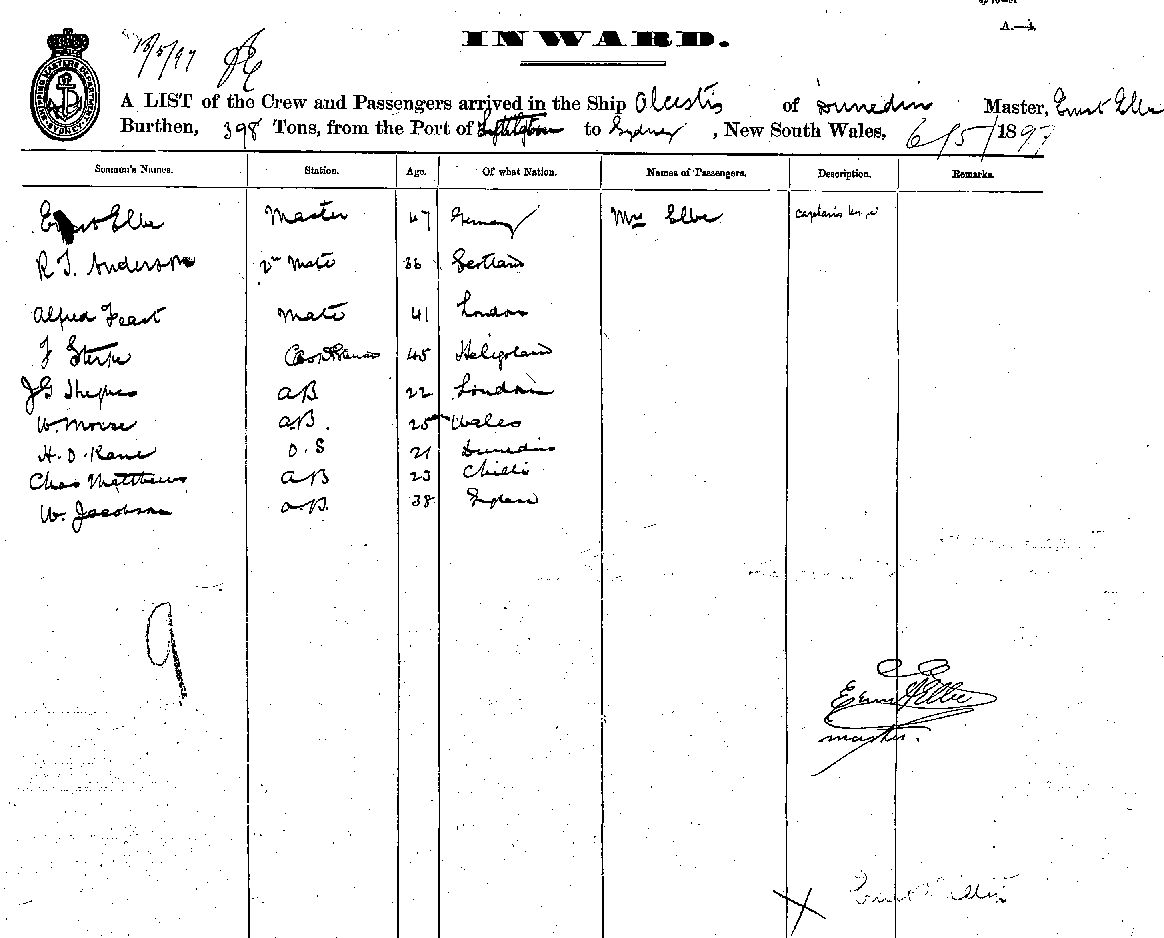 A.—4.
INWARD.
A LIST of the Crew and Passengers arrived in the Ship Alcestis of Dunedin Master, Ernst Elbe
Burthen, 398 Tons, from the Port of to Sydney, New South Wales, 6/5/1897
Seamen's Names. Station. Age. Of what Nation. Names of Passengers. Description. Remarks.
Ernst Elbe Master 47 Germany Mrs Elbe Captains
R J. Anderson 2nd Mate 36
Alfred Feast Mate 41 London
J 45 Heligoland
JG AB 22 London
W. Morse AB. 25 Wales
H. O. Kane O.S 21 Dunedin
Chas Matthews AB 23 Chilli
W. Jacobson AB. 38 England
9
Ernst Elbe
master.
X